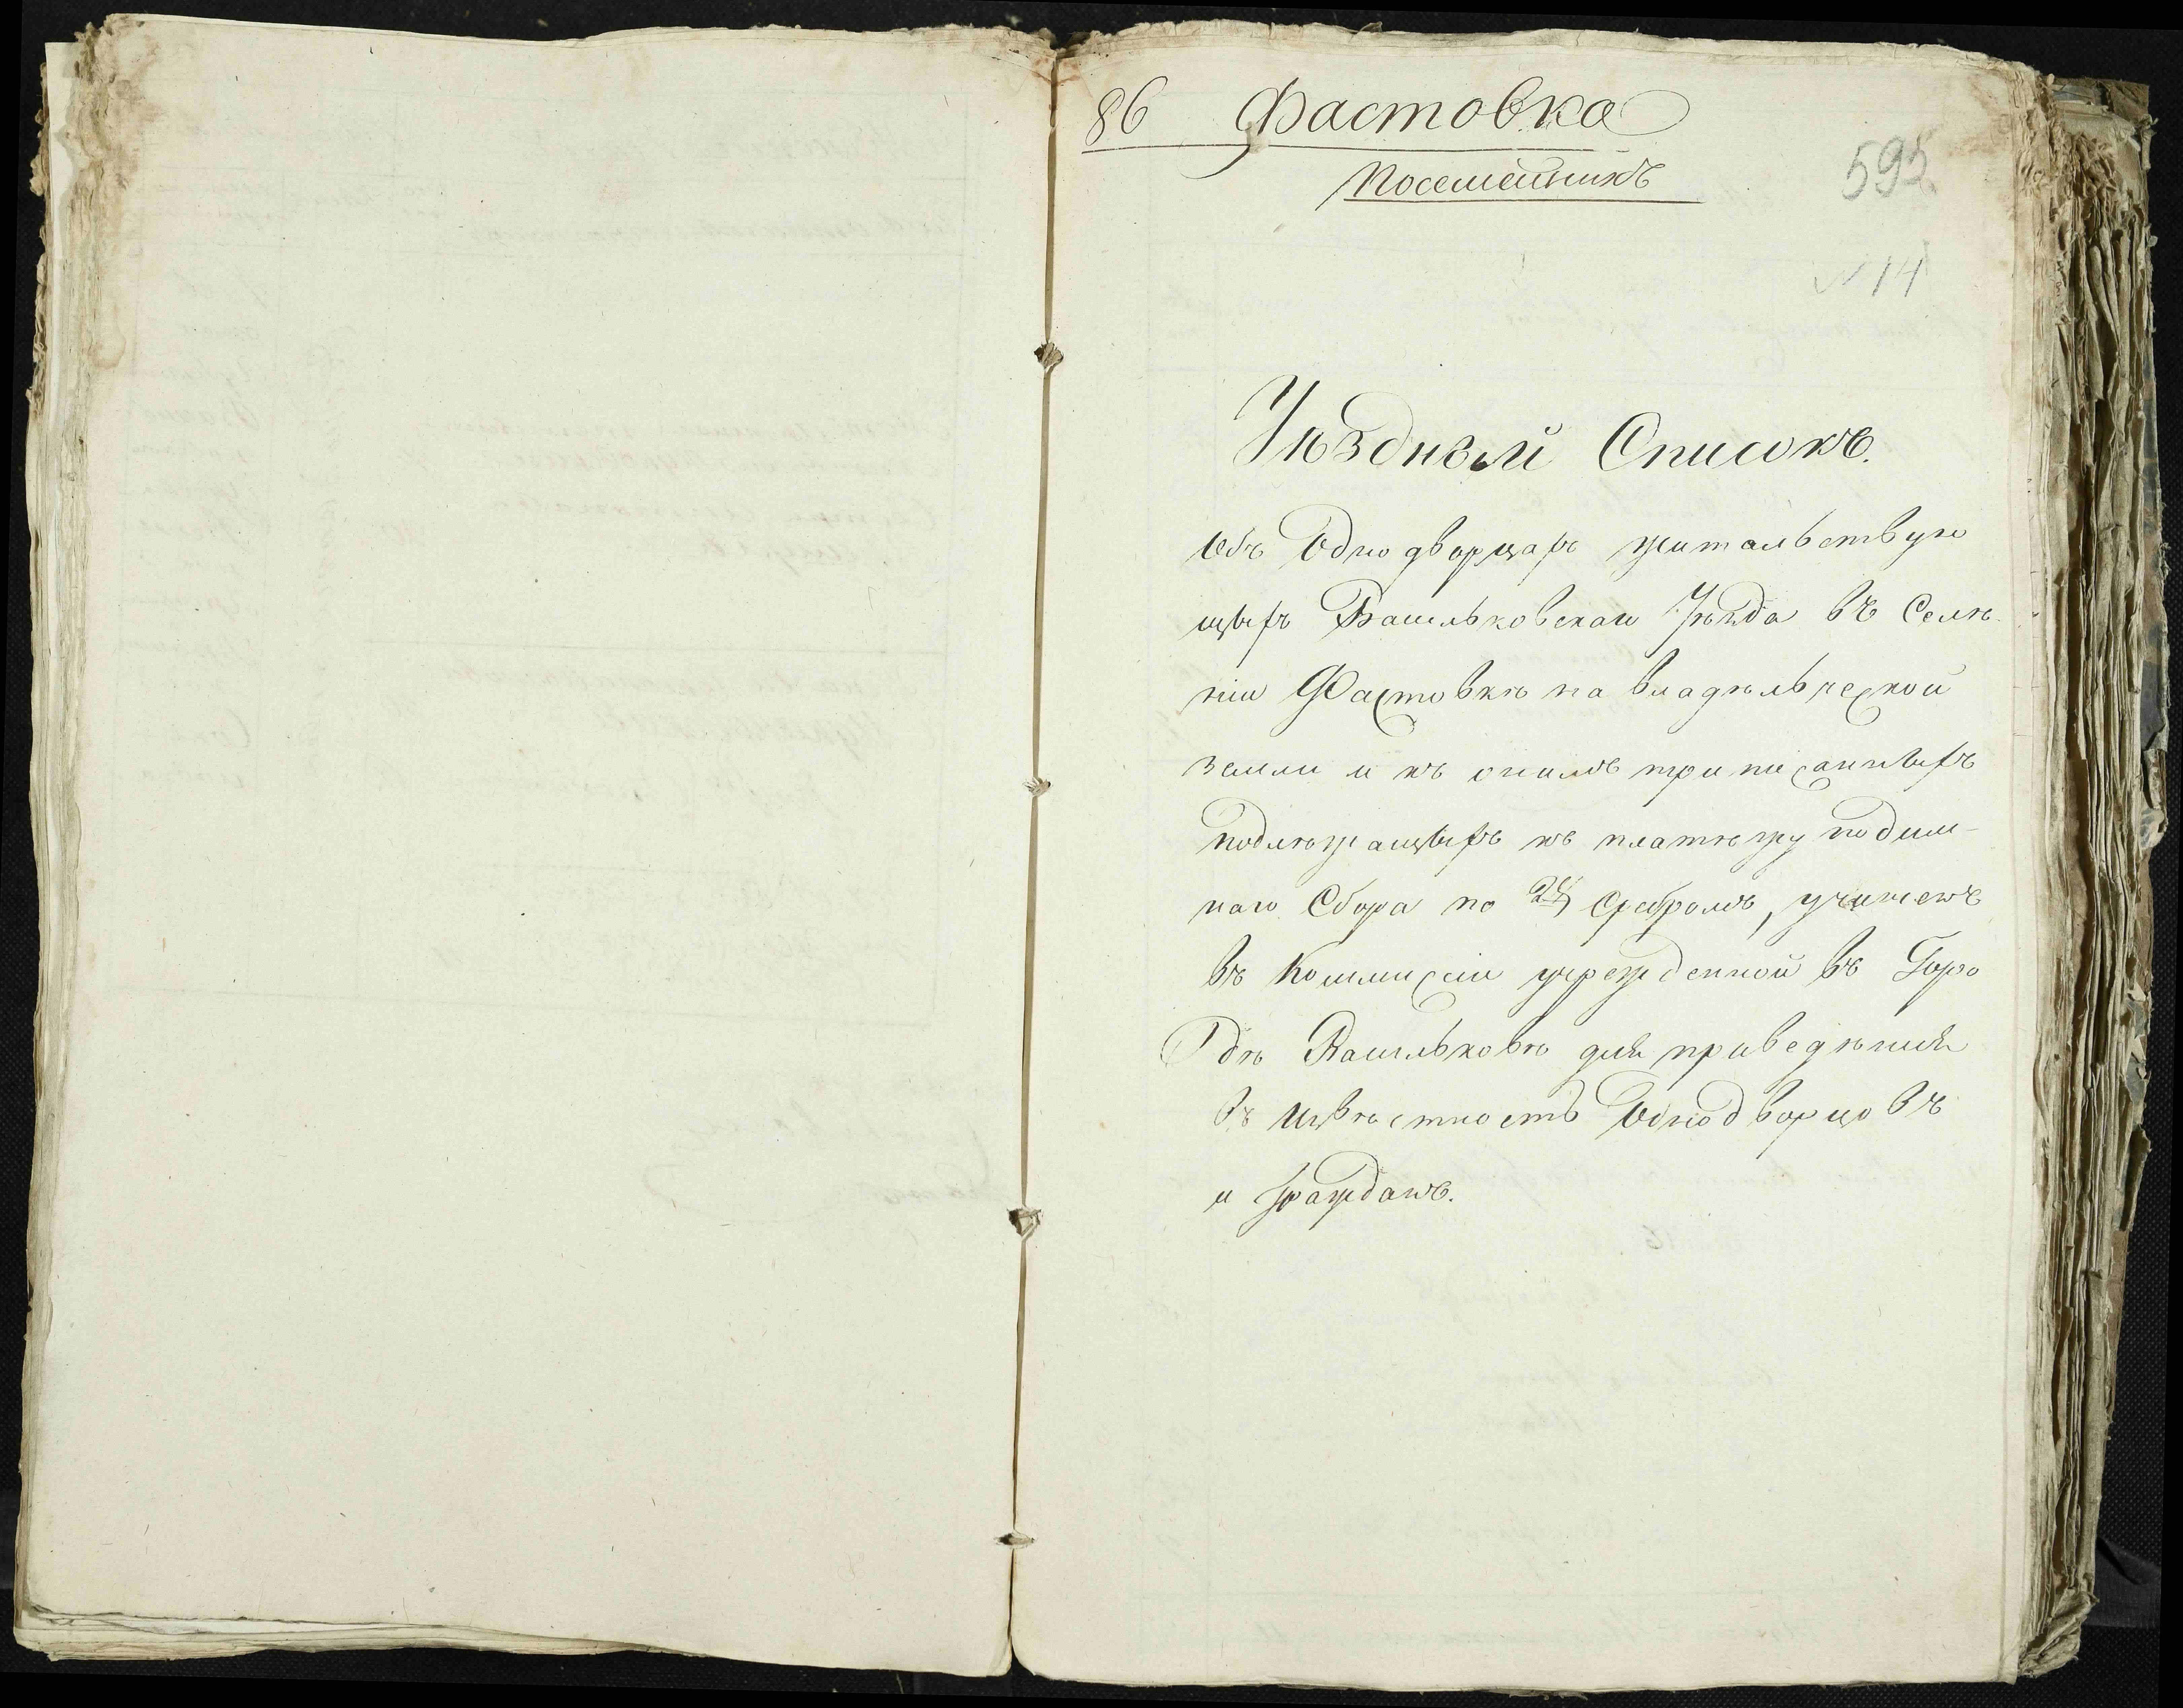 86 Фастовка
Посемейникъ
595
№ 14
Уѣздный Списокъ.
Объ Однодворцахъ жительствую
щихъ Васильковскаго Уѣзда въ Селѣ
ніи Фастовкѣ на владѣльческой
земли и къ онымъ приписанныхъ
подлѣжащихъ къ платѣжу подым-
наго Сбора по серебромъ, учиненъ
въ Коммисіи учрежденной въ Горо
дѣ Васильковѣ для приведѣнія
въ извѣстность Однодворцовъ
и Гражданъ.